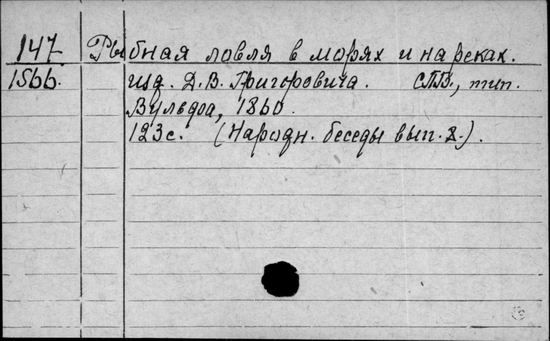 147 Рыбная ловля в морях и на реках.
1566. изд. Д. В. Григоровича. СПБ., тип.
Вульфа, 1860.
123 с. (Народн. беседы вып. 2.).